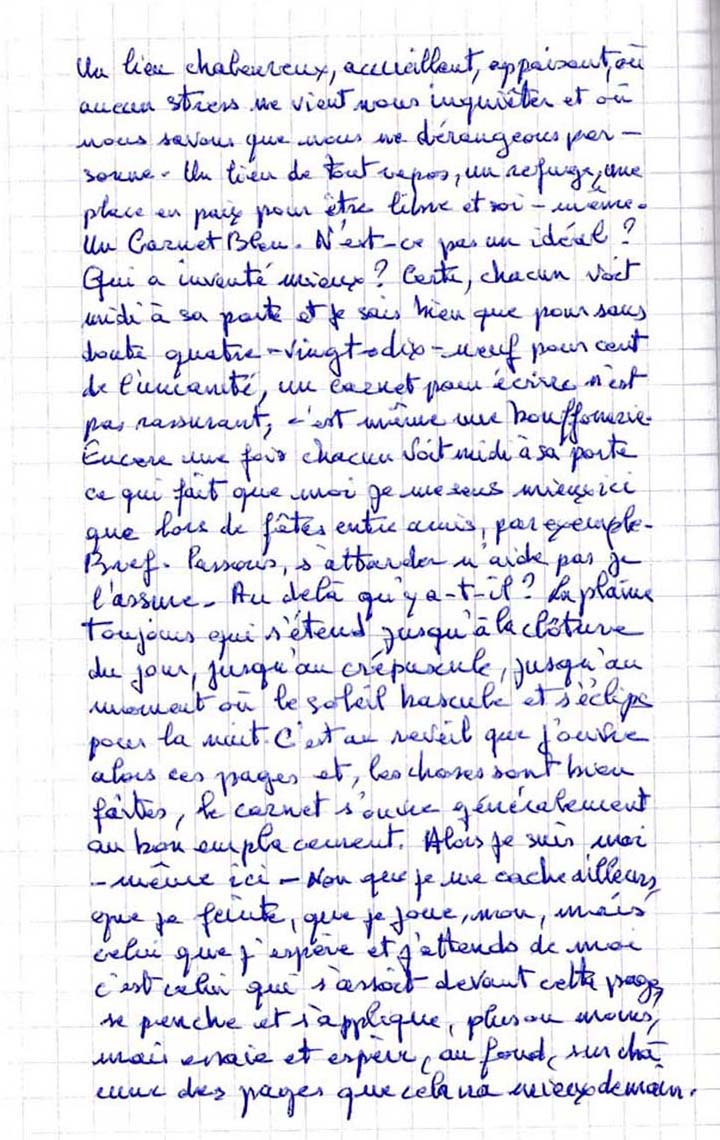 Un lieu chaleureux, accueillant, appaisant, où
aucun stress ne vient nous inquiéter et où
nous savons que nous ne dérangeons per-
sonne. Un lieu de tout repos, un refuge, une
place en paix pour être libre et soi-même.
Un Carnet Bleu. N'est-ce pas un idéal ?
Qui a inventé mieux ? Certe, chacun voit
midi à sa porte et je sais bien que pour sans
doute quatre-vingt-dix-neuf pour cent
de l'humanité, un carnet pour écrire n'est
pas rassurant, c'est même une bouffonnerie.
Encore une fois chacun voit midi à sa porte
ce qui fait que moi je me sens mieux ici
que lors de fêtes entre amis, par exemple.
Bref. Passons, s'attarder n'aide pas je
l'assure. Au delà qu'y a-t-il ? La plaine
toujours qui s'étend jusqu'à la clôture
du jour, jusqu'au crépuscule, jusqu'au
moment où le soleil bascule et s'éclipse
pour la nuit. C'est au réveil que j'ouvre
alors ces pages et, les choses sont bien
faites, le carnet s'ouvre généralement
au bon emplacement. Alors je suis moi
-même ici - Non que je me cache ailleurs,
que je feinte, que je joue, non, mais
celui que j'espère et j'attends de moi
c'est celui qui s'assoit devant cette page,
se penche et s'applique, plus ou moins,
mais essaie et espère, au fond, sur cha
cune des pages que cela ira mieux demain.